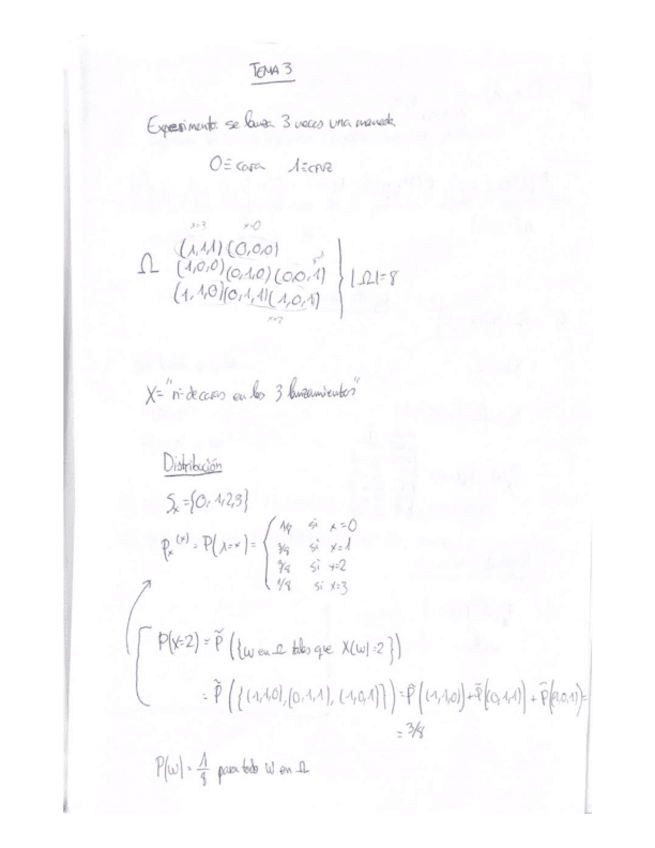 TEMA 3
Experimento: se lanza 3 veces una moneda
0≡cara 1≡cruz
x=3 x=0
(1,1,1) (0,0,0)
Ω (1,0,0) (0,1,0) (0,0,1) } |Ω|=8
(1,1,0) (0,1,1) (1,0,1)
x=2
X="nº de caras en los 3 lanzamientos"
Distribución
Sx={0,1,2,3}
Px(x) = P(X=x) = { 1/8 si x=0
3/8 si x=1
3/8 si x=2
1/8 si x=3
P(X=2) = P̃ ({ω en Ω tales que X(ω)=2})
= P̃ ({(1,1,0),(0,1,1),(1,0,1)}) = P̃(1,1,0)+P̃(0,1,1)+P̃(1,0,1)=
= 3/8
P(ω) = 1/8 para todo ω en Ω